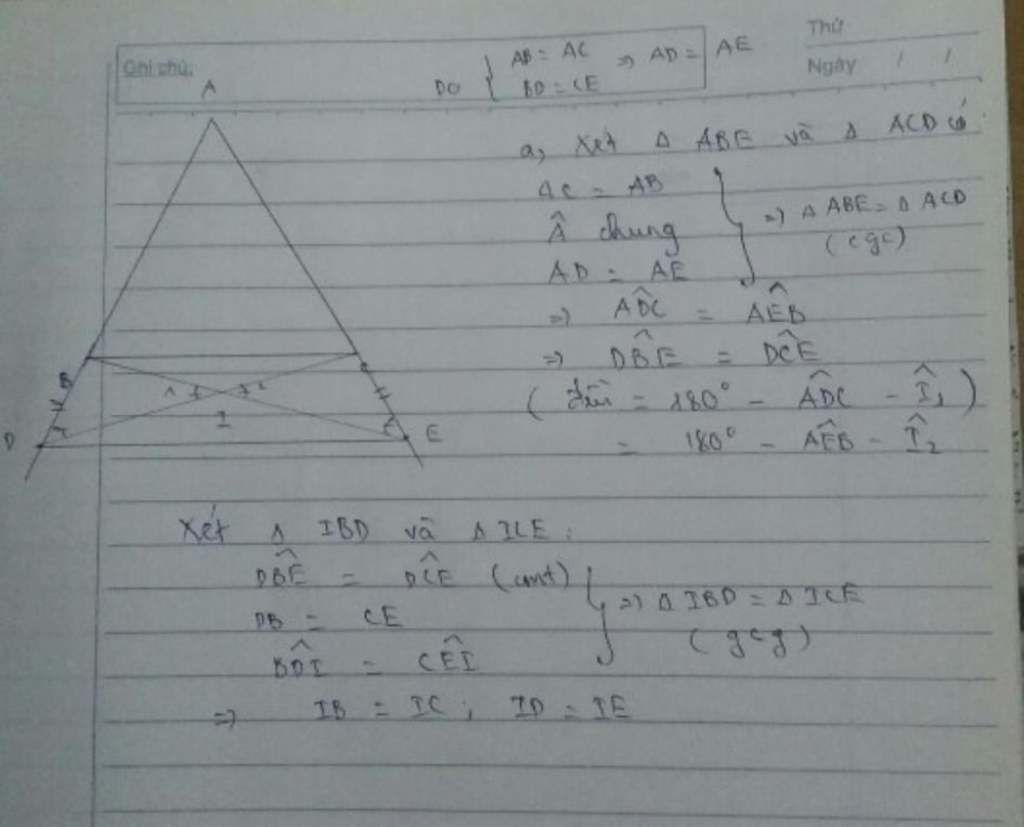 Ghi chú:
Thứ
Ngày / /
Do { AB = AC
BD = CE => AD = AE
a, Xét Δ ABE và Δ ACD có:
AC = AB
Â chung
AD = AE
} => Δ ABE = Δ ACD
(cgc)
=> AD̂C = AÊB
=> DB̂E = DĈE
( = 180° - AD̂C - Î₁ )
= 180° - AÊB - Î₂
A
B
D
E
I
1
2
Xét Δ IBD và Δ ICE:
DB̂E = DĈE (cmt)
DB = CE
BD̂I = CÊI
} => Δ IBD = Δ ICE
(gcg)
=> IB = IC; ID = IE